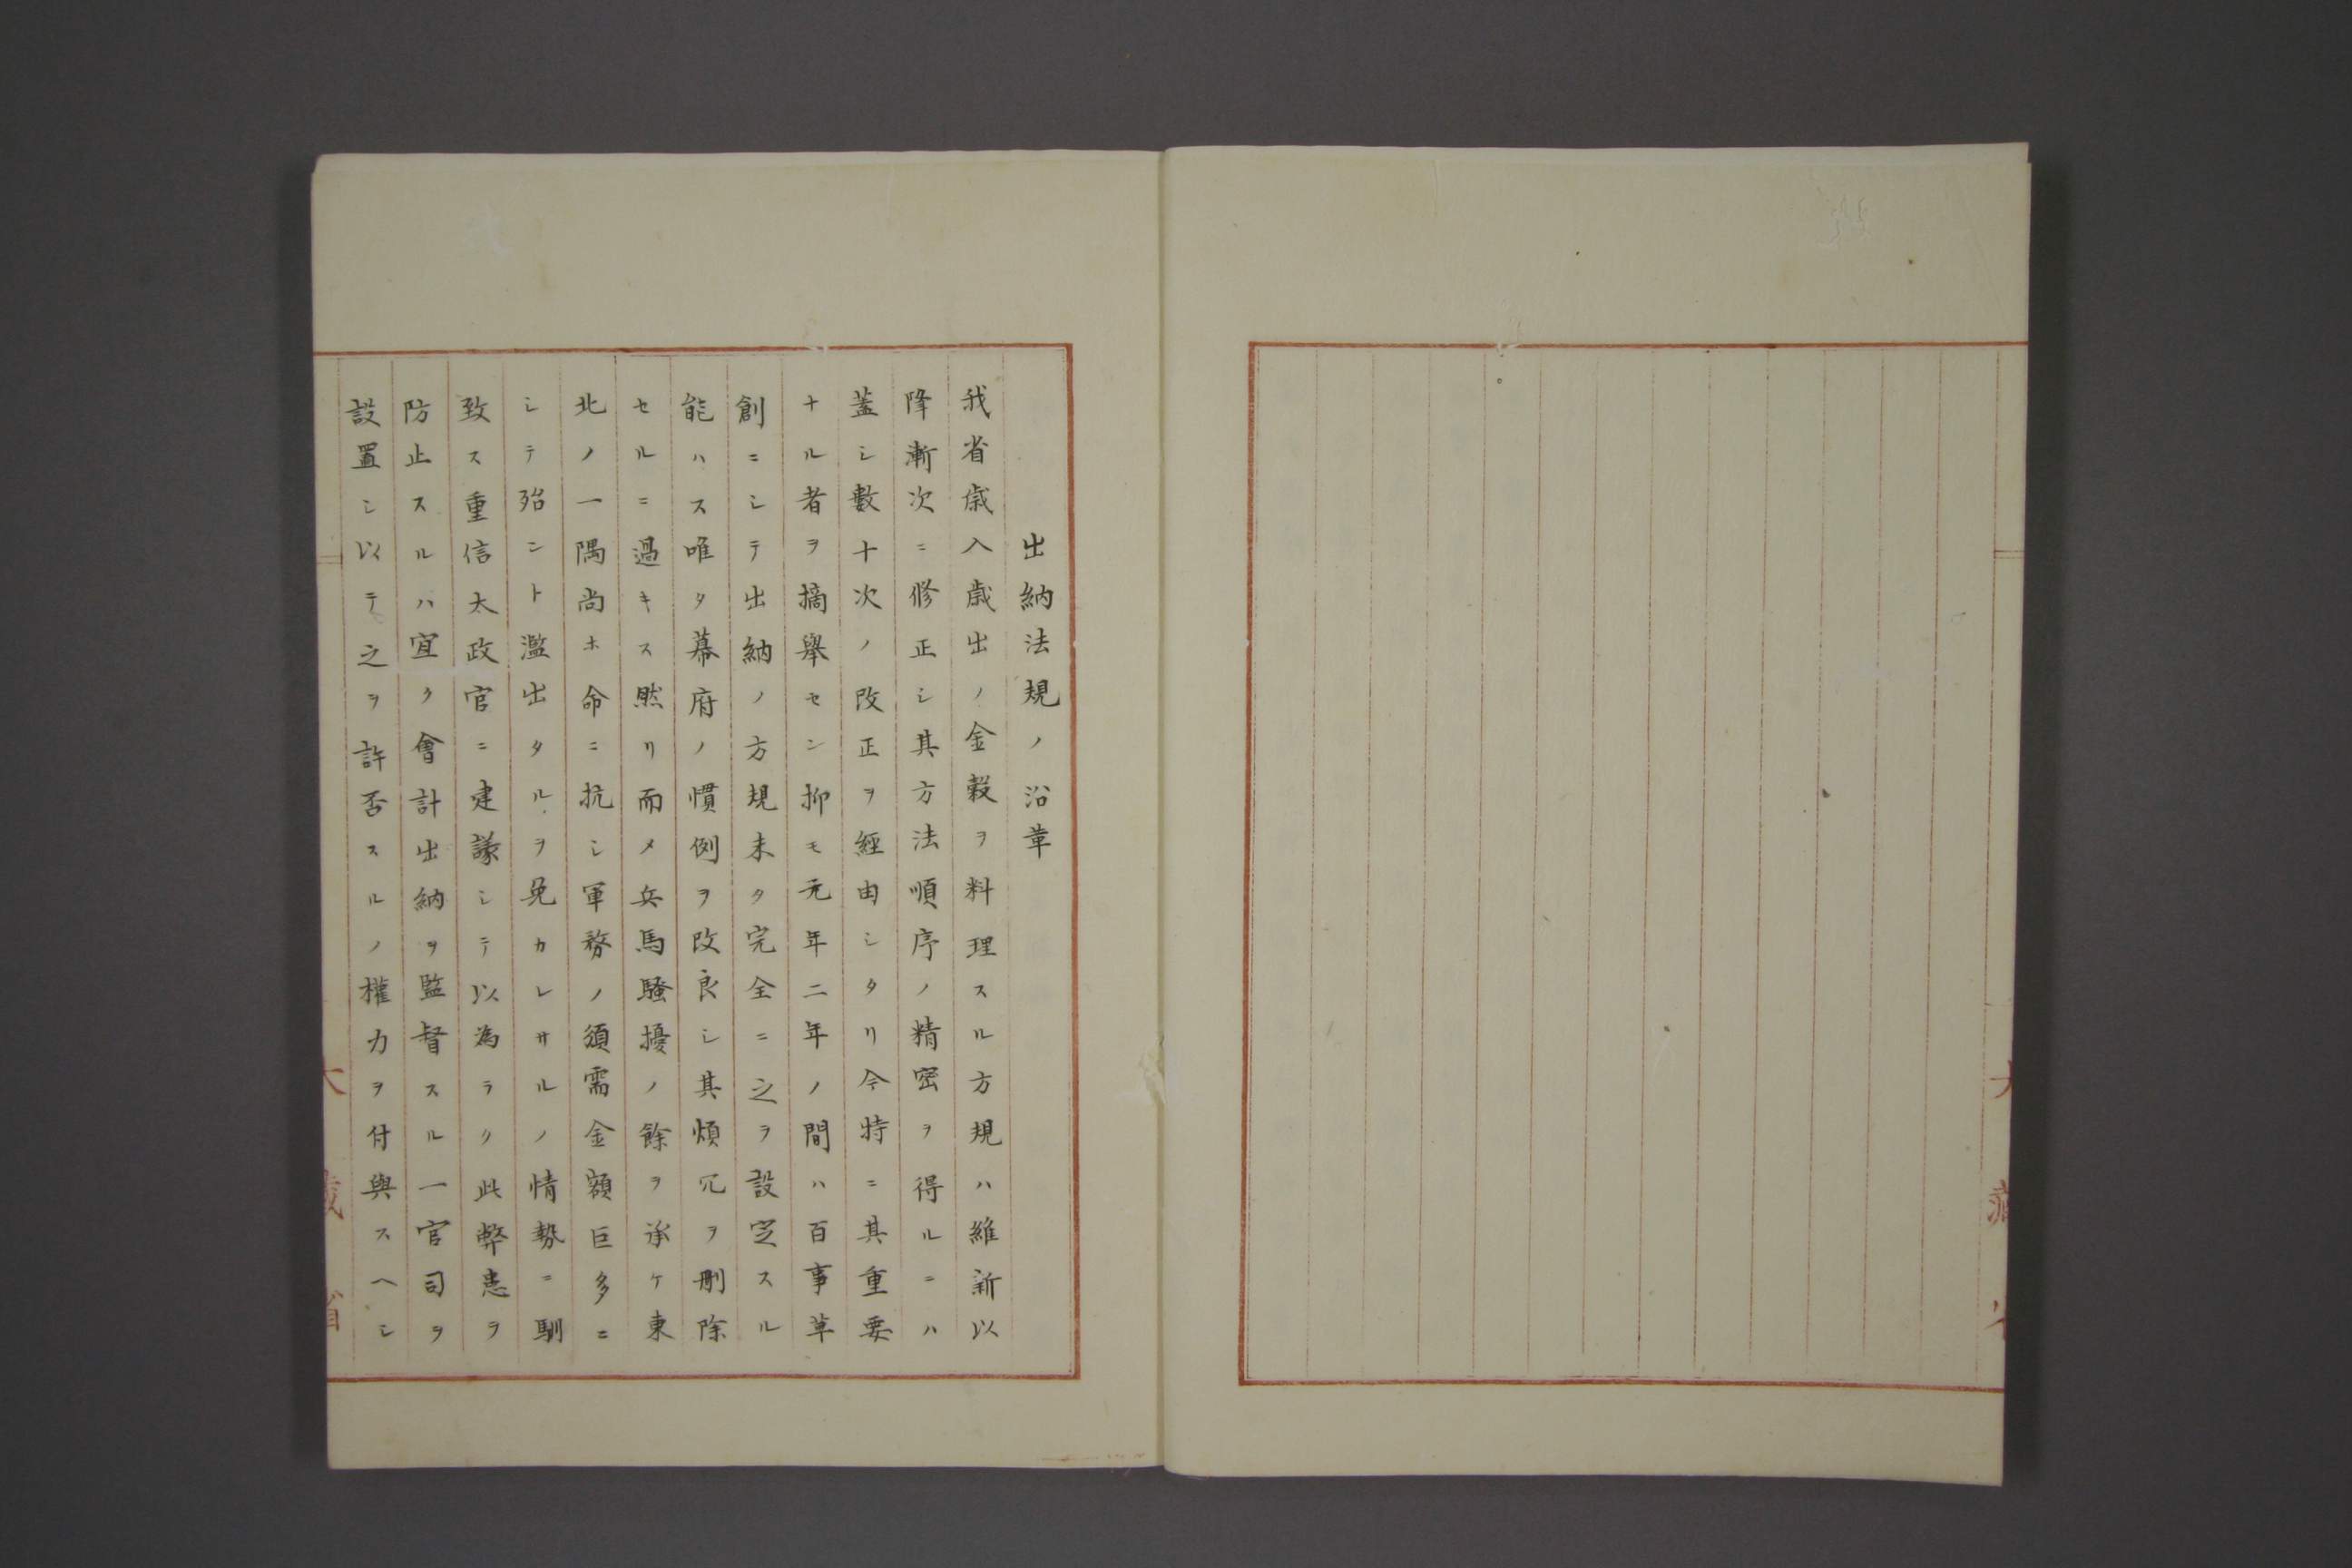 出納法規ノ沿革
我省歳入歳出ノ金穀ヲ料理スル方規ハ維新以
降漸次ニ修正シ其方法順序ノ精密ヲ得ルニハ
蓋シ數十次ノ改正ヲ經由シタリ今特ニ其重要
ナル者ヲ摘舉セン抑モ元年二年ノ間ハ百事草
創ニシテ出納ノ方規未タ完全ニ之ヲ設定スル
能ハス唯タ幕府ノ慣例ヲ改良シ其煩冗ヲ刪除
セルニ過キス然リ而メ兵馬騷擾ノ餘ヲ承ケ東
北ノ一隅尚ホ命ニ抗シ軍務ノ須需金額巨多ニ
シテ殆ント濫出タルヲ免カレサルノ情勢ニ馴
致ス重信太政官ニ建議シテ以為ラク此弊患ヲ
防止スルハ宜ク會計出納ヲ監督スル一官司ヲ
設置シ以テ之ヲ許否スルノ權力ヲ付與スヘシ
大藏省
大藏省